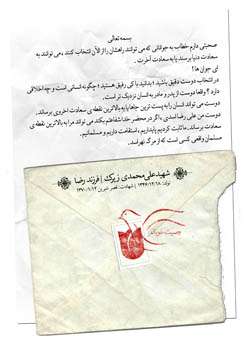 بسمه تعالی
صحبتی دارم خطاب به جوانانی که می توانند راهشان را از الأن انتخاب کنند ، می توانند به
سعادت دنیا برسند یا به سعادت آخرت .
ای جوان ها !
در انتخاب دوست دقیق باشید ؛ بدانید با کی رفیق هستید ؛ چگونه انسانی است و چه اخلاقی
دارد ؟ واقعا دوست از پدر و مادر به انسان نزدیک تر است .
دوست می تواند انسان را به پست ترین جاها یا به بالاترین نقطه ی سعادت اخروی برساند.
دوست من علی رضا اسدی ، اگر در محضر خدا شفاعتم بکند می تواند مرا به بالاترین نقطه ی
سعادت برساند. ما ثابت کردیم پایداریم ، استقامت داریم و مسلمانیم .
مسلمان واقعی کسی است که از مرگ نهراسد .
شهید علی محمدی زیرک | فرزند رضا
تولد: ۱۳۴۶/۱۲/۱۸ | شهادت: قصر شیرین